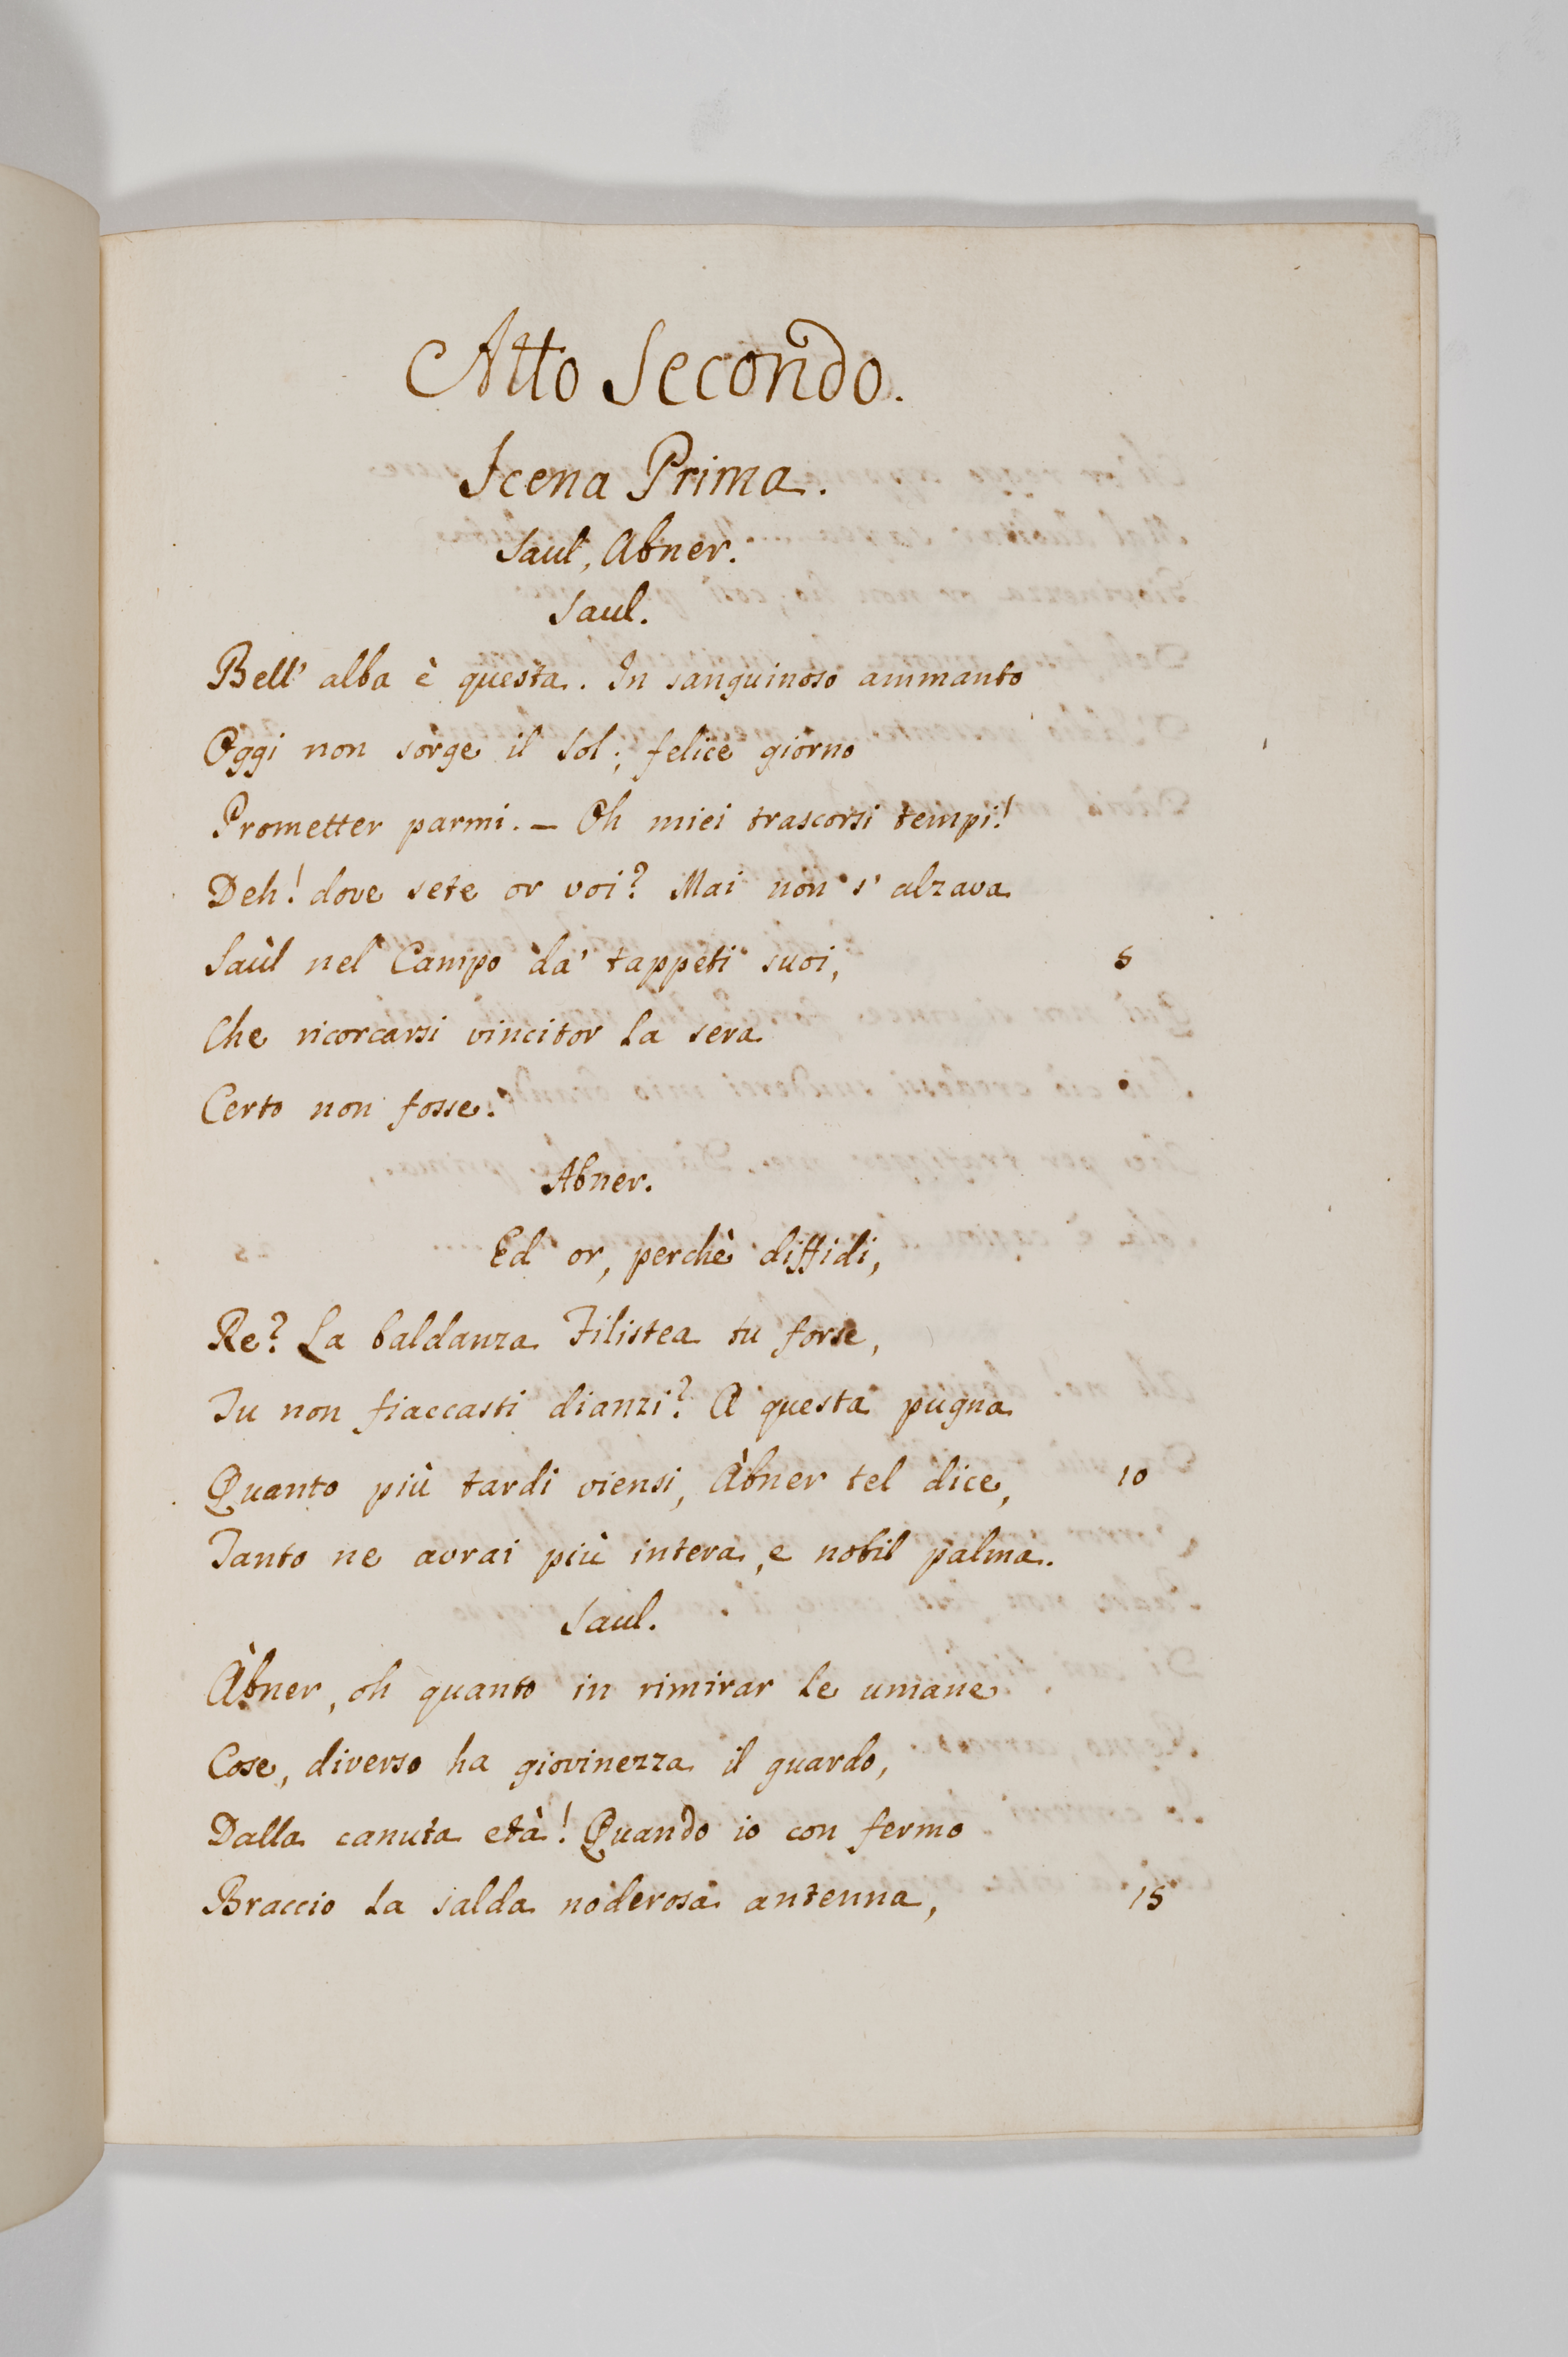 Atto Secondo.
Scena Prima.
Saul, Abner.
Saul.
Bell' alba è questa. In sanguinoso ammanto
Oggi non sorge il Sol; felice giorno
Prometter parmi. — Oh miei trascorsi tempi!
Deh! dove sete or voi? Mai non s' alzava
Saùl nel Campo da' tappeti suoi, 5
Che ricorcarsi vincitor la sera
Certo non fosse.
Abner.
Ed or, perchè diffidi,
Re? La baldanza Filistea tu forse,
Tu non fiaccasti dianzi? A questa pugna
Quanto più tardi viensi, Àbner tel dice, 10
Tanto ne avrai più intera, e nobil palma.
Saul.
Àbner, oh quanto in rimirar le umane
Cose, diverso ha giovinezza il guardo,
Dalla canuta età! Quando io con fermo
Braccio la salda noderosa antenna, 15